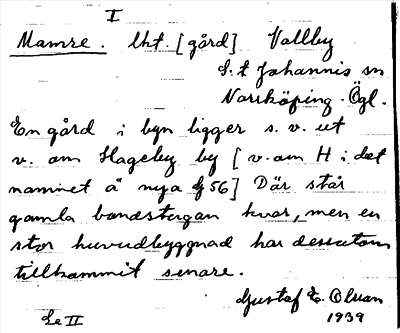 I
Mamre. lht. [gård] Vallby
S:t Johannis sn
Norrköping. Ögl.
En gård i byn ligger s. v. ut
v. om Hageby by [v. om H i det
namnet å nya G 56] Där står
gamla bondstugan kvar, men en
stor huvudbyggnad har dessutom
tillkommit senare.
Gustaf E. Olsson
Le II 1939